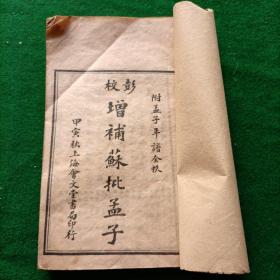 附孟子年譜全板
彭校
增補蘇批孟子
甲寅秋上海會文堂書局印行